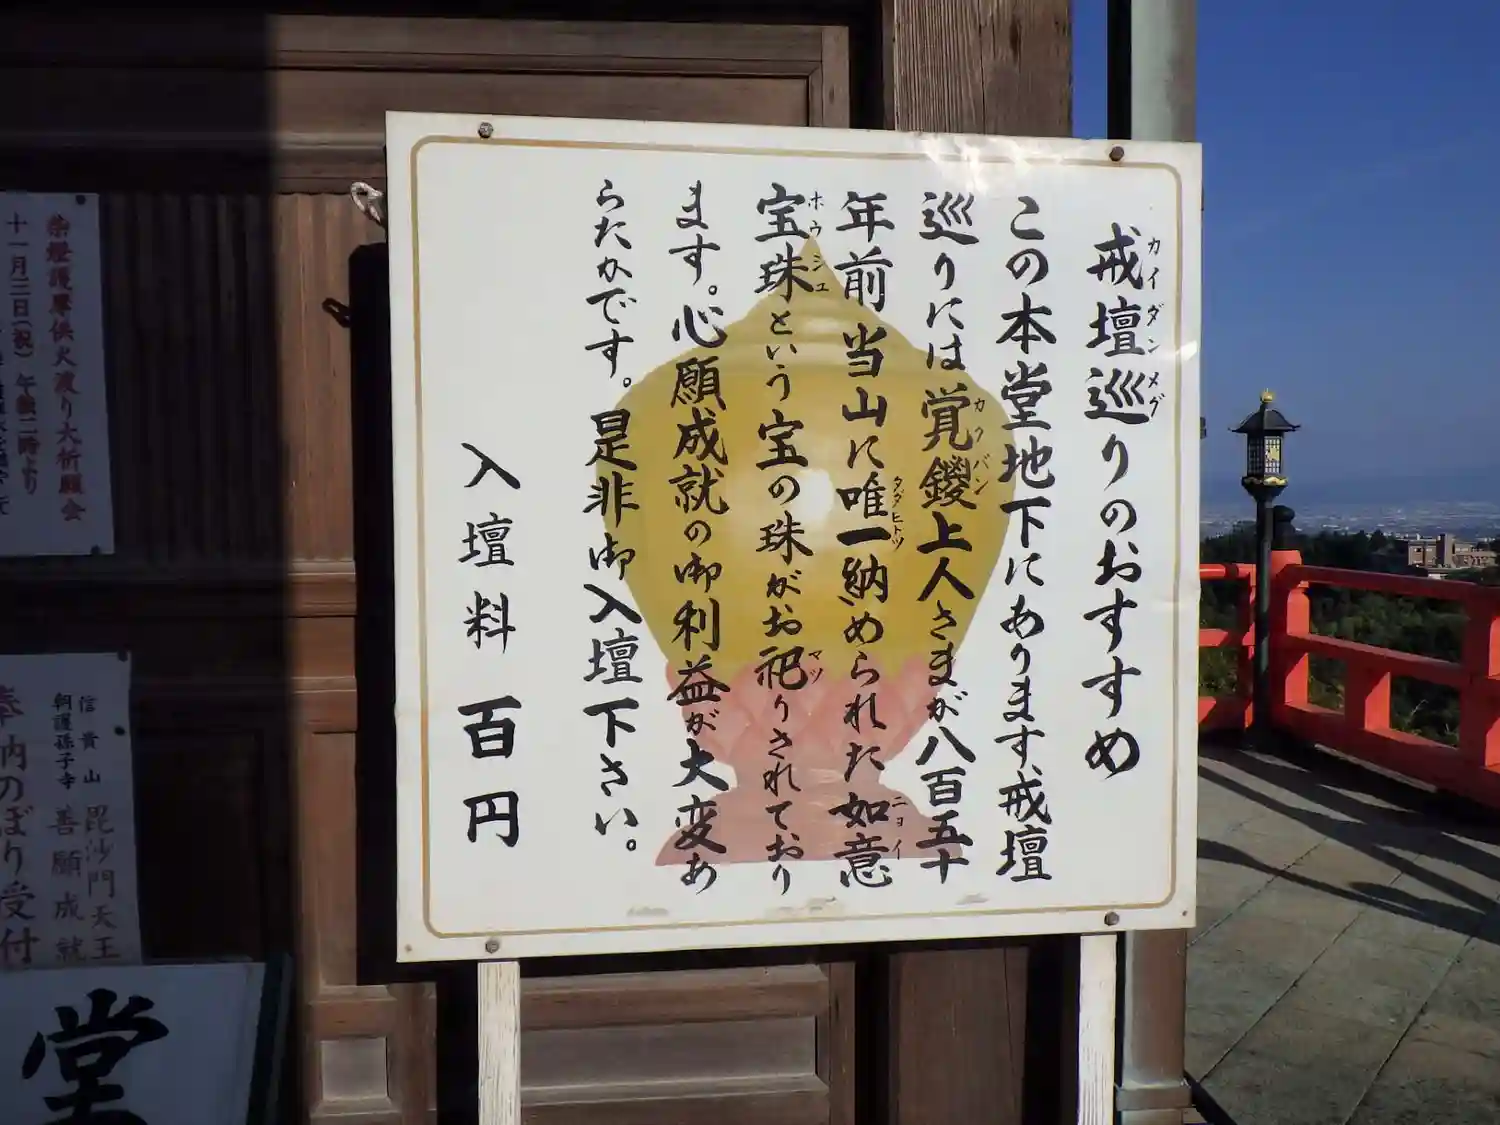 戒壇巡りのおすすめ
カイダンメグ
この本堂地下にあります、戒壇
巡りには覚鑁上人さまが八百五十
カクバン
年前当山に唯一納められた如意
タダヒトツ
ニョイ
宝珠という宝の珠がお祀りされており
ホウシュ
マツ
ます。心願成就の御利益が大変あ
らたかです。是非御入壇下さい。
入壇料 百円
柴燈護摩供火渡り大祈願会
十一月三日(祝) 午後二時より
信貴山
朝護孫子寺
毘沙門天王
善願成就
奉納のぼり受付
堂